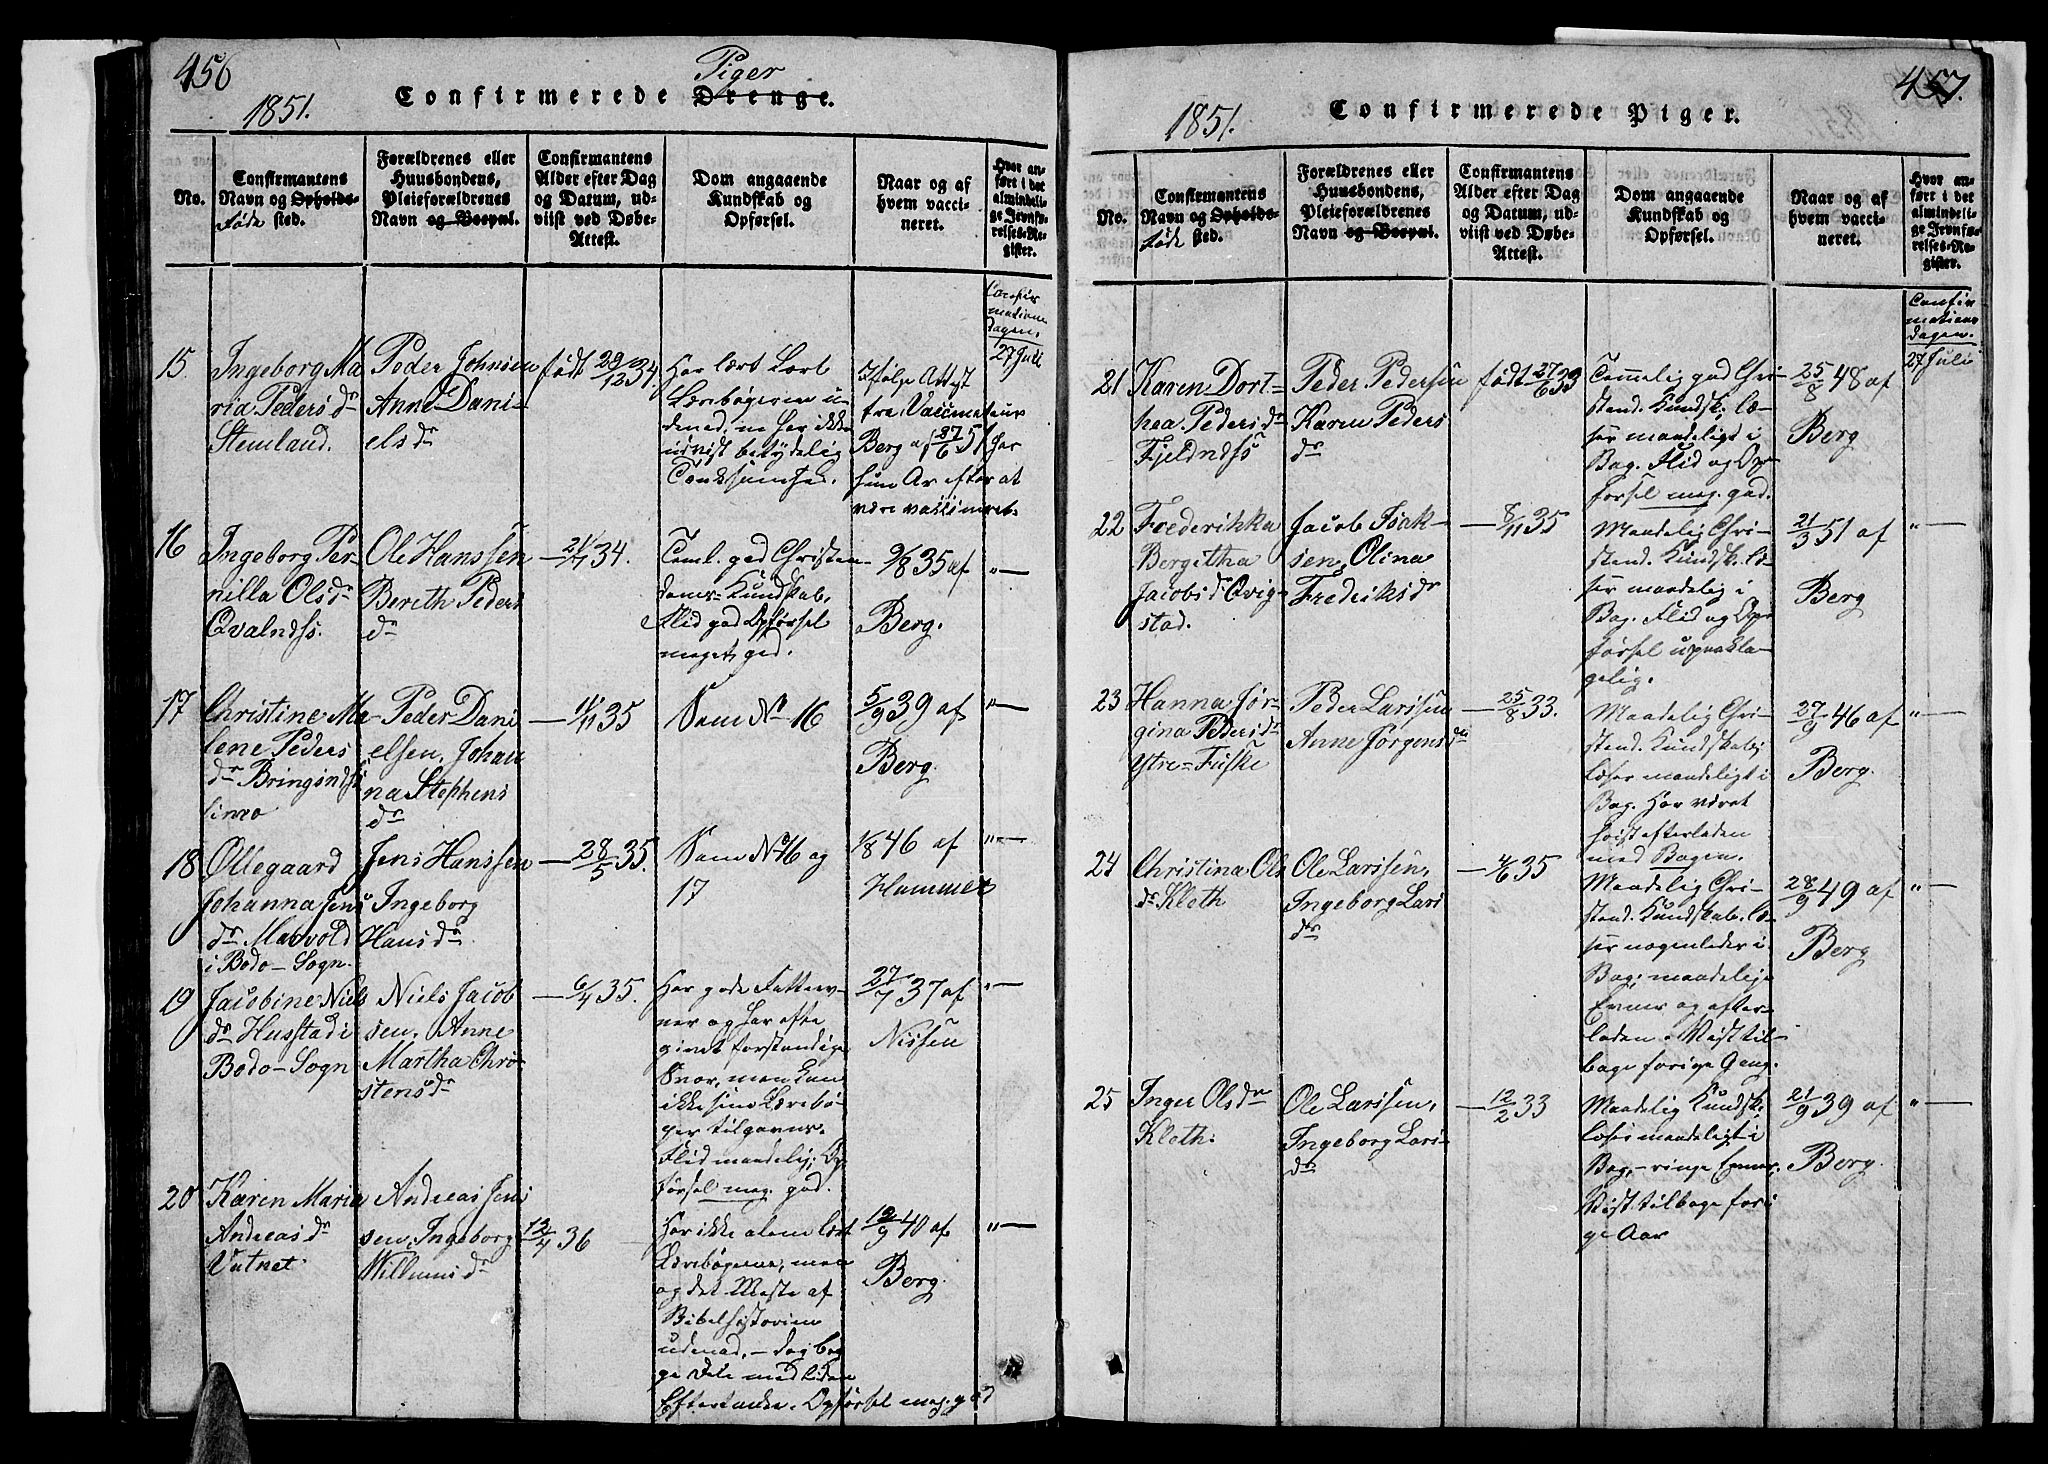 456
1851.
Confirmerede Drenge.
Piger
No.
Confirmantens
Navn og Opholds-
Føde sted.
Forældrenes eller
Huusbondens,
Pleieforældrenes
Navn og Boepæl.
Confirmantens
Alder efter Dag
og Datum, ud-
viist ved Døbe-
Attest.
Dom angaaende
Kundskab og
Opførsel.
Naar og af
hvem vacci-
neret.
Hvor an-
ført i det
almindeli-
ge Jevnfø-
relses-Re-
gister.
Confir
mations
dagen.
27 Juli
15
Ingeborg Ma
ria Peders dr
Stemland.
Peder Johnsen
Anne Dani-
els dr
født 29/12 34.
Har lært
Lærebøgerne u-
denad, m har ikke
udvist betydelig
Ifølge Attest
fra Vaccinateur
Berg af
har
hun Ar efter at
være vaccineret.
16
Ingeborg Per-
nilla Olsdr
Qvalndss.
Ole Hanssen
Bereth Peders
dr
Teml. god Christen-
doms-Kundskab,
Flid god Opførsel
meget god.
9/8 35 af
Berg.
"—
17
Christine Ma-
lene Peders
dr Bringsindss
Peder Dani
elsen, Johan
na Stephens
dr
— 11/11 35
Som No 16
5/9 39 af
Berg.
"—
18
Ollegaard
Johanna Jens
dr Marvold
i Bodø-Sogn.
Jens Hanssen
Ingeborg
Hansdr
— 28/5 35.
Som No 16 og
17
1/8 46 af
Hammer
"—
19
Jacobine Niels
dr Hustad i
Bodø-Sogn
Niels Jacob
sen. Anne
Martha Chri-
stensdr
— 6/4 35.
Har gode Fatteev-
ner og har ofte
givet forstandige
Svar, men kun
ikke sine Lærebø-
ger tilgavns.
Flid maadelig; Op
førsel meg. god.
27/7 37 af
Nissen
"—
20
Karen Maria
Andreasdr
Vatnet.
Andreas Jens
sen, Ingeborg
Willumsdr
12/4 36
Har ikke alene lært
Lærebøgerne, men
og det Meste af
Bibelhistorien
udenad, - dog beg
ge Dele med liden
Eftertanke. Opførsel meg. god
12/9 40 af
Berg.
"—
457.
1851.
Confirmerede Piger.
No.
Confirmantens
Navn og Opholds-
Føde sted.
Forældrenes eller
Huusbondens,
Pleieforældrenes
Navn og Boepæl.
Confirmantens
Alder efter Dag
og Datum, ud-
viist ved Døbe-
Attest.
Dom angaaende
Kundskab og
Opførsel.
Naar og af
hvem vacci-
neret.
Hvor an-
ført i det
almindeli-
ge Jevnfø-
relses-Re-
gister.
Confir-
mations
dagen.
27 Juli
21
Karen Dort-
hea Pedersdr
Fjeldndss
Peder Pedersen
Karen Peders
dr
født 27/6 33
Temmelig god Chri-
stend. Kundsk. læ-
ser maadeligt i
Bog. Flid og Op-
førsel meg. god.
25/8 48 af
Berg
22
Frederikka
Bergitha
Jacobsdr Qvig-
stad.
Jacob Isak-
sen, Olina
Fredriksdr
— 8/11 35
Maadelig Chri-
stend. Kundsk. læ-
ser maadelig i
Bog. Flid og Op-
førsel upaakla-
gelig.
21/3 51 af
Berg
"—
23
Hanna Jør-
gina Pedersdr
Ytre-Fiske
Peder Larssen
Anne Jørgensdr
— 25/8 33.
Maadelig Chri-
stend. Kundskab;
læser maadeligt i
Bog. Har været
høist efterladen
med Bogen.
27/9 46 af
Berg.
"—
24
Christina Ols
dr Kleth
Ole Larssen,
Ingeborg Lars
dr
— 4/6 35
Maadelig Chri-
stend. Kundskab. læ-
ser nogenledes i
Bog; maadelige
Evner og efter-
laden. Vist til-
bage forrige Gang.
28/9 49 af
Berg
"—
25
Inger Olsdr
Kleth.
Ole Larssen,
Ingeborg Lars-
dr
— 12/2 33
Maadelig Kundsk.
læser maadeligt i
Bog, - ringe Evner,
Vist tilbage forri
ge Aar
21/9 39 af
Berg.
"—